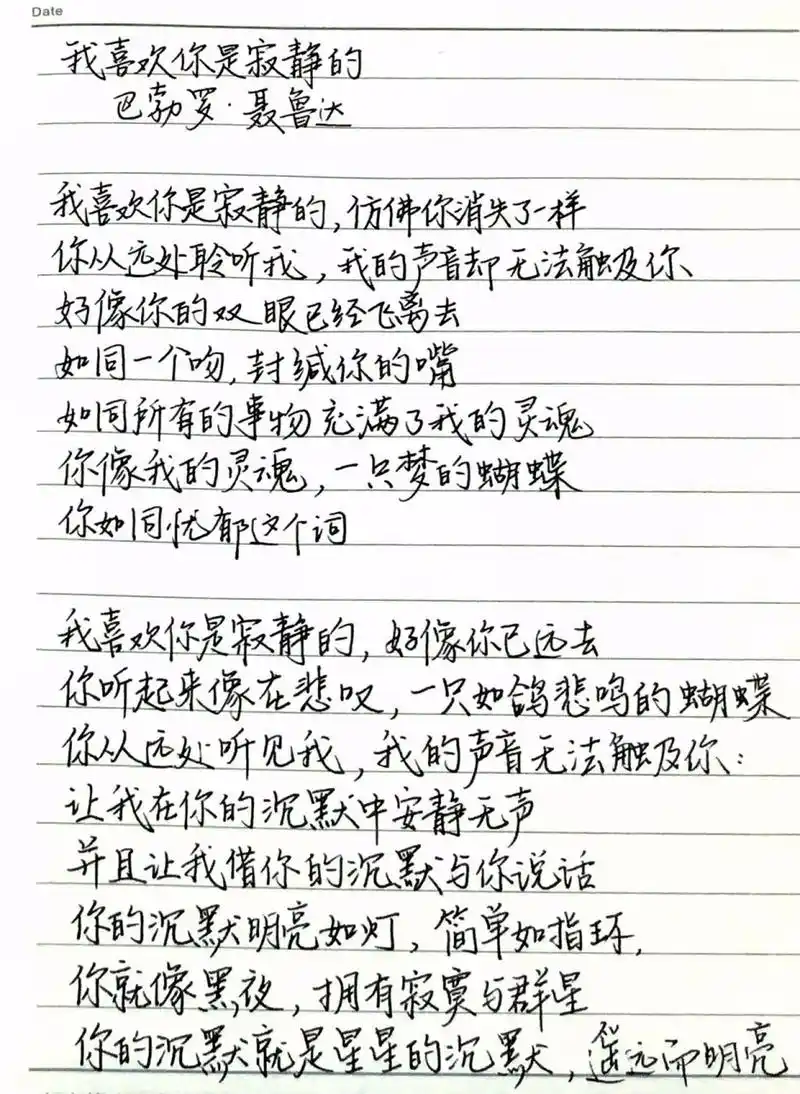 Date
我喜欢你是寂静的
巴勃罗·聂鲁达
我喜欢你是寂静的,仿佛你消失了一样
你从远处聆听我,我的声音却无法触及你
好像你的双眼已经飞离去
如同一个吻,封缄你的嘴
如同所有的事物充满了我的灵魂
你像我的灵魂,一只梦的蝴蝶
你如同忧郁这个词
我喜欢你是寂静的,好像你已远去
你听起来像在悲叹,一只如鸽悲鸣的蝴蝶
你从远处听见我,我的声音无法触及你:
让我在你的沉默中安静无声
并且让我借你的沉默与你说话
你的沉默明亮如灯,简单如指环,
你就像黑夜,拥有寂寞与群星
你的沉默就是星星的沉默,遥远而明亮